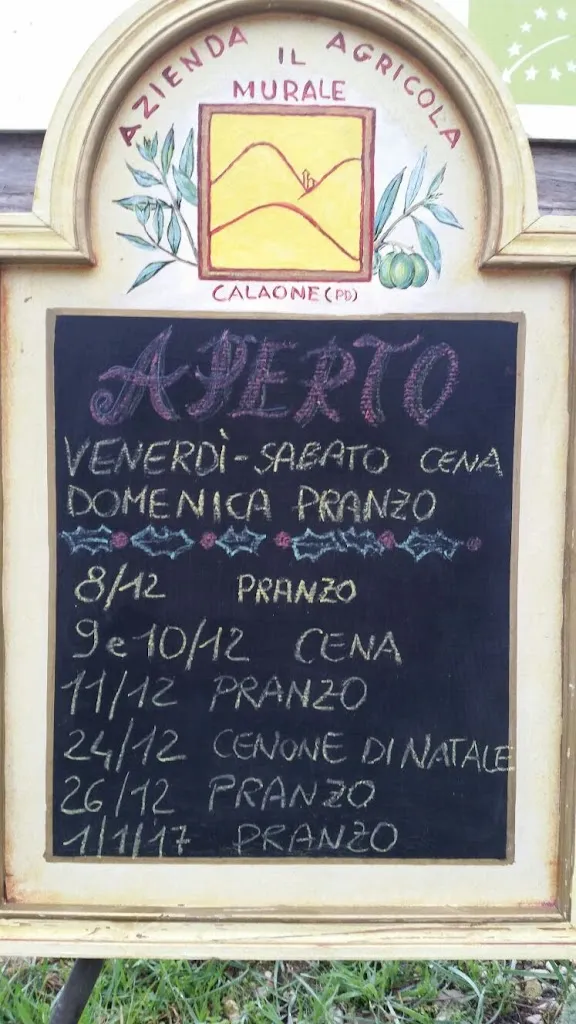 AZIENDA IL AGRICOLA
MURALE
CALAONE (PD)
APERTO
VENERDÌ-SABATO CENA
DOMENICA PRANZO
8/12 PRANZO
9 e 10/12 CENA
11/12 PRANZO
24/12 CENONE DI NATALE
26/12 PRANZO
1/1/17 PRANZO